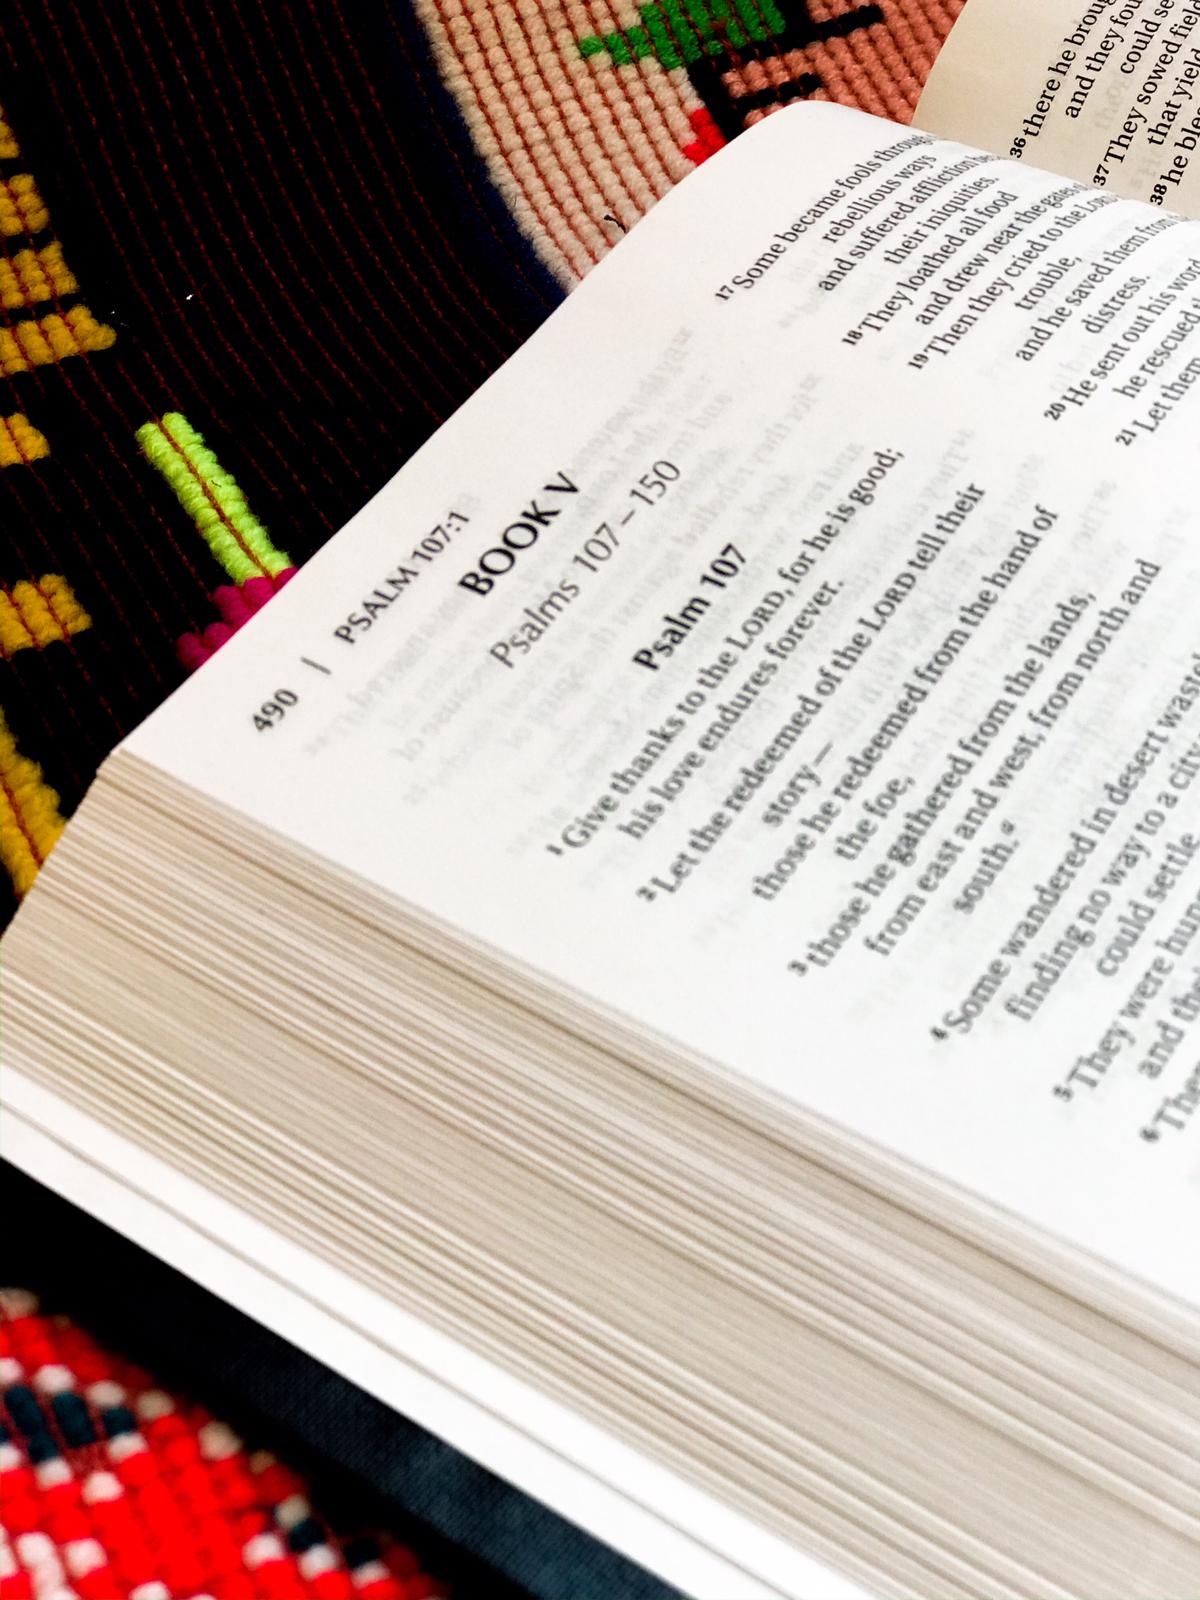 490 | PSALM 107:1
BOOK V
Psalms 107–150
Psalm 107
1 Give thanks to the LORD, for he is good;
his love endures forever.
2 Let the redeemed of the LORD tell their
story—
those he redeemed from the hand of
the foe,
3 those he gathered from the lands,
from east and west, from north and
south.a
4 Some wandered in desert
finding no way to a city
could settle.
5 They were
and
6
17 Some became fools through
rebellious ways
and suffered affliction
their iniquities.
18 They loathed all food
and drew near the gates of
19 Then they cried to the LORD
trouble,
and he saved them from
distress.
20 He sent out his word
he rescued
21 Let them
36 there he
and they
could
37 They sowed
that yield
38 he